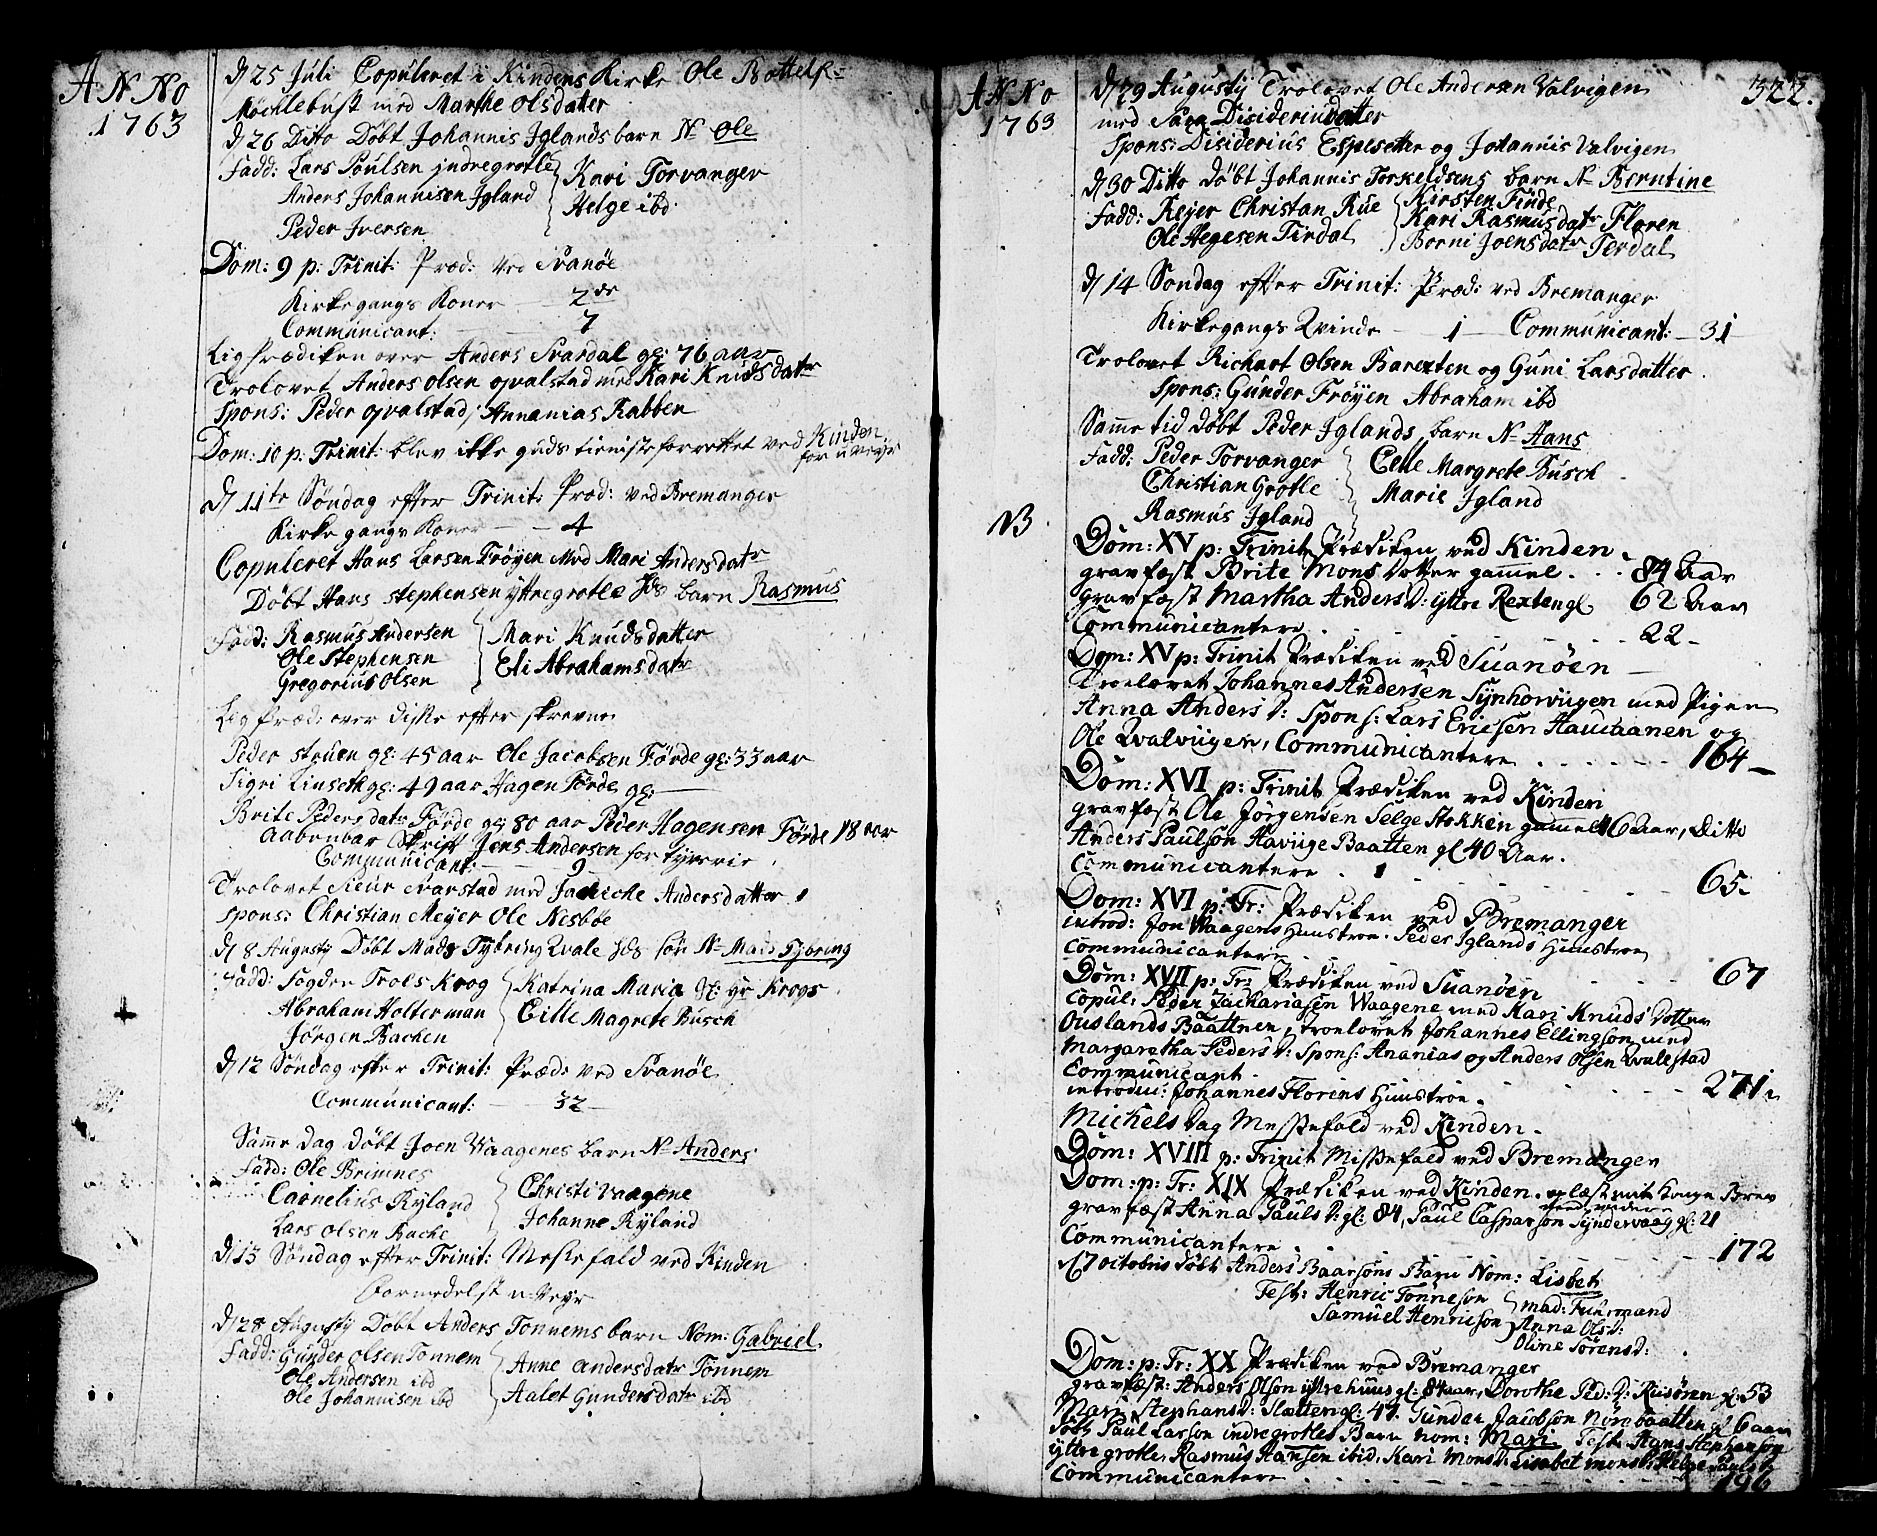 ANNO
1763
d 25 Juli Copuleret i Kindens Kirke Ole Bottels:
Mochlebust med Marthe Olsdatter
d 26 Ditto Döbt Johannis Jglands barn N Ole
Fadd: Lars Poulsen jndregrotle
Anders Johannisen Jgland
Peder Jversen
Kari Torvanger
Helge ibd
Dom: 9 p: Trinit: Præd: ved Svanöe
Kirkegangs Koner 2de
Communicant: 7
Ligprædiken over Anders Svardal gl: 76 aar
Trolovet Anders Olsen qvalstad med Kari Knudsdatr
Spons: Peder qvalstad, Annanias Rabben
Dom: 10 p: Trinit: blev ikke guds tieniste forrettet ved Kinden
for uveyr
d 11te Söndag efter Trinit: Præd: ved Bremanger
Kirkegangs Koner 4
Copuleret Hans Larsen Fröyen med Mari Andersdatr
Döbt Hans Stephensen yttregrotle Hs barn Rasmus
Fadd: Rasmus Andersen
Ole Stephensen
Gregorius Olsen
Mari Knudsdatter
Eli Abrahamsdatr
Lig Præd: over diske efter skrevne
Peder struen gl: 45 aar Ole Jacobsen Förde gl: 33 aar
Sigri Linseth gl: 49 aar Hagen Förde gl:
Brite Pedersdatr Förde gl 80 aar Peder Hagensen Förde 18 aar
Aabenbar Skrift Jens Andersen for tyverie
Communicant: 9
Trolovet Sieur Svarstad med Andersdatter
Spons: Christian Meyer Ole Nesböe
d 8 Augusty Döbt Mads Tybring Qvale Hs sön N Mads Tybring
Fadd: Fogden Trols Krog
Abraham Holterman
Jörgen Bachen
Katrina Maria Krogs
Citte Magrete Busch
d 12 Söndag efter Trinit: Præd: ved Svanöe
Communicant: 32
Samme Dag döbt Joen Waagenes barn N Anders
Fadd: Ole Brimnes
Carnelius Ryland
Lars Olsen Bache
Christi Vaagene
Johanne Ryland
d 13 Söndag efter Trinit: Messefald ved Kinden
formedelst uveyr
d 28 Augusty Döbt Anders Tonnems barn Nom: Gabriel
Fadd: Gunder Olsen Tonnem
Ole Andersen ibd
Ole Johannisen ibd
Anne Andersdatr Tönnem
Aalet Gundersdatr ibd
ANNO
1763
322.
d 29 Augusty Trolovet Ole Andersen Valvigen
med Sara Disiderindatter
Spons: Disiderius Espesetter og Johannis Valvigen
d 30 Ditto döbt Johannis Torkeldsens barn N Berntine
Fadd: Reyer Christan Rue
Ole Hegesen Tirdal
Kirsten Finde
Kari Rasmusdatr Floren
Borni Joensdatr Terdal
d 14 Söndag efter Trinit: Præd: ved Bremanger
Kirkegangs Qvinde 1 Communicant: 31
Trolovet Richart Olsen Barexten og Guni Larsdatter
Spons: Gunder Fröyen Abraham ibd
Samme tid döbt Peder Jglands barn N Hans
Fadd: Peder Torvanger
Christian Grotle
Rasmus Jgland
Citte Margrete Busch
Marie Jgland
NB
Dom: XV p: Trinit Prædiken ved Kinden
gravfæst Brite Mons Dotter gammel 84 Aar
gravfæst Martha Anders D: yttre Rexten gl 62 Aar
Communicantere 22
Dom: XV p: Trinit Prædiken ved Suanöen
Troelovet Johannes Andersen Synhorviigen med Pigen
Anna Anders D: Spons: Lars Ericsen Hauchaanen og
Ole Qvalviigen, Communicantere 164
Dom: XVI p: Trinit Prædiken ved Kinden
gravfæst Ole Jörgensen Selge Stokken gammel 16 Aar, Ditto
Anders Paulson Haviige Baatten gl 40 Aar.
Communicantere 65
Dom: XVI p: Tr: Prædiken ved Bremanger
introd: Jon Waagens Huustroe. Peder Jglands Huustroe
Communicantere 67
Dom: XVII p: Tr: Prædiken ved Suanöen
Copul: Peder Zachariasen Waagene med Kari Knuds Dotter
Ouslands Baattnen, troelovet Johannes Ellingson med
Margaretha Peders D: Spons: Ananias og Anders Olsen Qvalestad
Communicant 271
introduc: Johannes Florens Huustroe.
Michels Dag Messefald ved Kinden.
Dom: XVIII p: Trinit Missefald ved Bremanger
Dom: p: Tr: XIX Prædiken ved Kinden. oplæst Brev
gravfæst Anna Pauls D: gl: 84, Paul Casparson Syndervaag gl: 21
Communicantere 172
d 17 octobris döbt Anders Baarsöns Barn Nom: Lisbet
Test: Henric Tönneson
Samuel Henricson
mad: Fuhrmand
Anna Ols D:
Oline Sörens D:
Dom: p: Tr: XX Prædiken ved Bremanger
gravfæst: Anders Olson yttrehuus gl: 84 aar, Dorothe Ped: D: Risören gl 53
Mari Stephans D: Slætten gl: 47. Gunder Jacobson Nörebaatten gl 6 aar
döbt Paul Larson indregrotles Barn nom: Mari Test: Hans Stephenson
yttre grotle, Rasmus Hansen ibid, Kari Mons D: Lisabet mons D: Helge Pauls D:
Communicantere 196